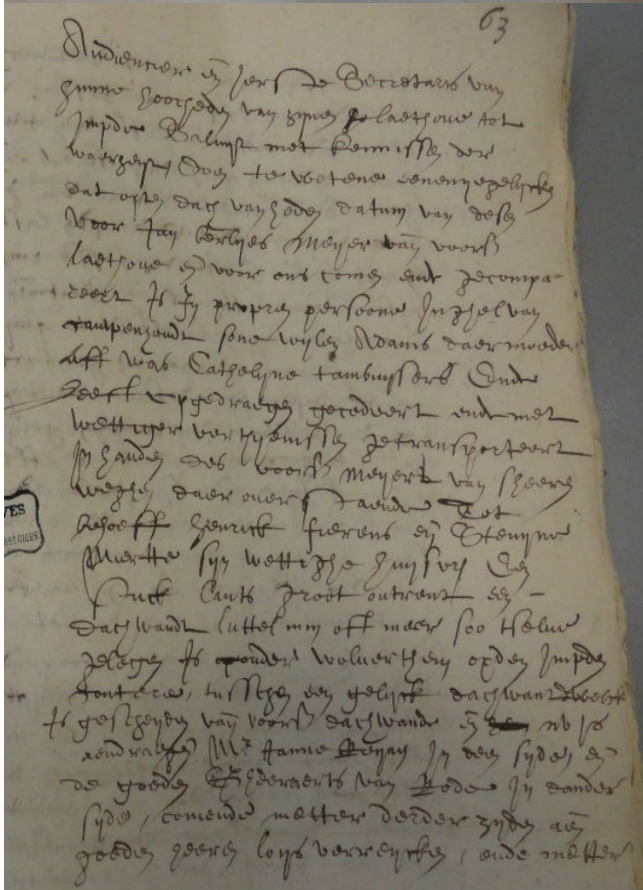 63
Audiencier en̄ jerste Secretaris van
hunne hoocheden van zynen laethove tot
Impde met kennissen der
waerheyt, Doen te wetene eenenyegelycken
dat opten dach van heden datum van desen
voor Jan Meyer van voors
laethove en̄ voor ons comen ende gecompa-
reert Is In propren persoone Inghel van
campenhoudt sone wylen Adams daer moeder
aff was Cathelyne tambuyssers Ende
heeft opgedraegen gecedeert ende met
wettiger verthyenissen getransporteert
In handen des voors meyers van sheeren
weghen daer over staende Tot
behoeff Henrick fierens en̄ Stevyne
Mertte syn wettighe huysvr Een
stuck Lants groot ontrent een
dachwandt luttel min oft meer soo tselve
gelegen Is onder wolverthem opden Impden
coutere, tusschen een gelyck dachwandt
Is gescheyden van voors dachwande en̄ nv is
Mr Janne In een syden en̄
de goeden Gheeraerts van Rode In dander
syde, comende metter derder zyden aen
goeden heeren loys verreycken, ende metter